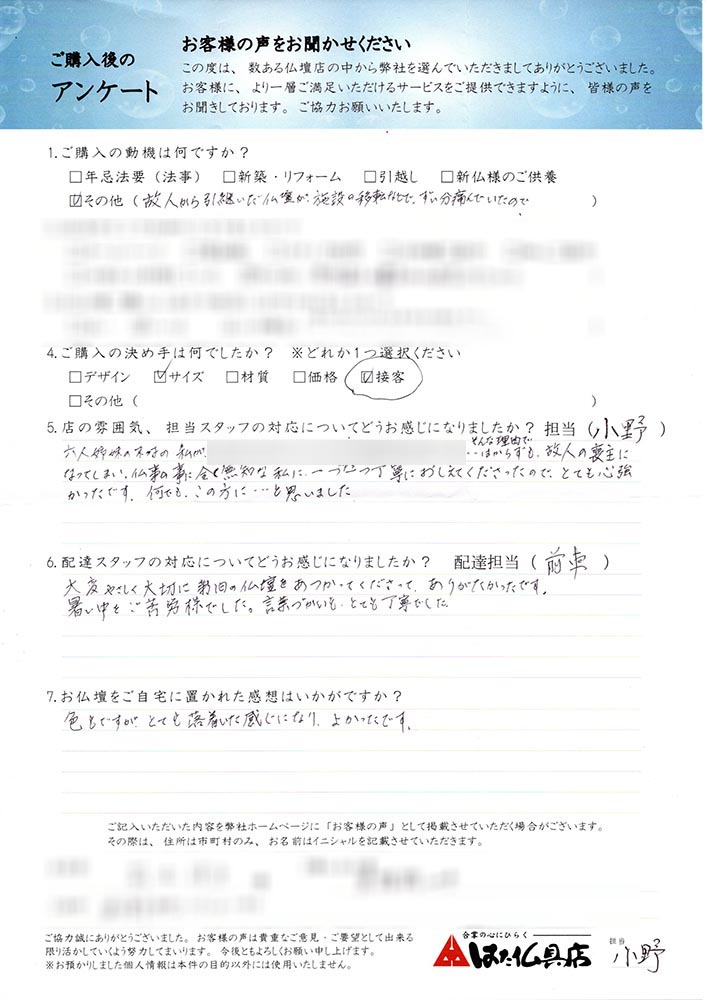 ご購入後の
アンケート
お客様の声をお聞かせください
この度は、数ある仏壇店の中から弊社を選んでいただきましてありがとうございました。
お客様に、より一層ご満足いただけるサービスをご提供できますように、皆様の声を
お聞きしております。ご協力お願いいたします。
1.ご購入の動機は何ですか？
□年忌法要（法事） □新築・リフォーム □引越し □新仏様のご供養
☑その他（故人から引継いだ仏壇が、施設の移転などで、ずい分痛んでいたので）
4.ご購入の決め手は何でしたか？ ※どれか1つ選択ください
□デザイン ☑サイズ □材質 □価格 ☑接客
□その他（ ）
5.店の雰囲気、担当スタッフの対応についてどうお感じになりましたか？担当（小野）
六人姉妹の末の私が
そんな理由で
…はからずも、故人の喪主に
なってしまい、仏事の事に全く無知な私に、一つづつ丁寧におしえてくださったので、とても心強
かったです。何でも、この方に…と思いました
6.配達スタッフの対応についてどうお感じになりましたか？ 配達担当（前車）
大変やさしく大切に新旧の仏壇をあつかってくださって、ありがたかったです。
暑い中をご苦労様でした。言葉づかいも、とても丁寧でした
7.お仏壇をご自宅に置かれた感想はいかがですか？
色もですが、とても落着いた感じになり、よかったです。
ご記入いただいた内容を弊社ホームページに「お客様の声」として掲載させていただく場合がございます。
その際は、住所は市町村のみ、お名前はイニシャルを記載させていただきます。
ご協力誠にありがとうございました。お客様の声は貴重なご意見・ご要望として出来る
限り活かしていくよう努力してまいります。今後ともよろしくお願い申し上げます。
※お預かりしました個人情報は本件の目的以外には使用いたしません。
合掌の心にひらく
はた仏具店
担当 小野